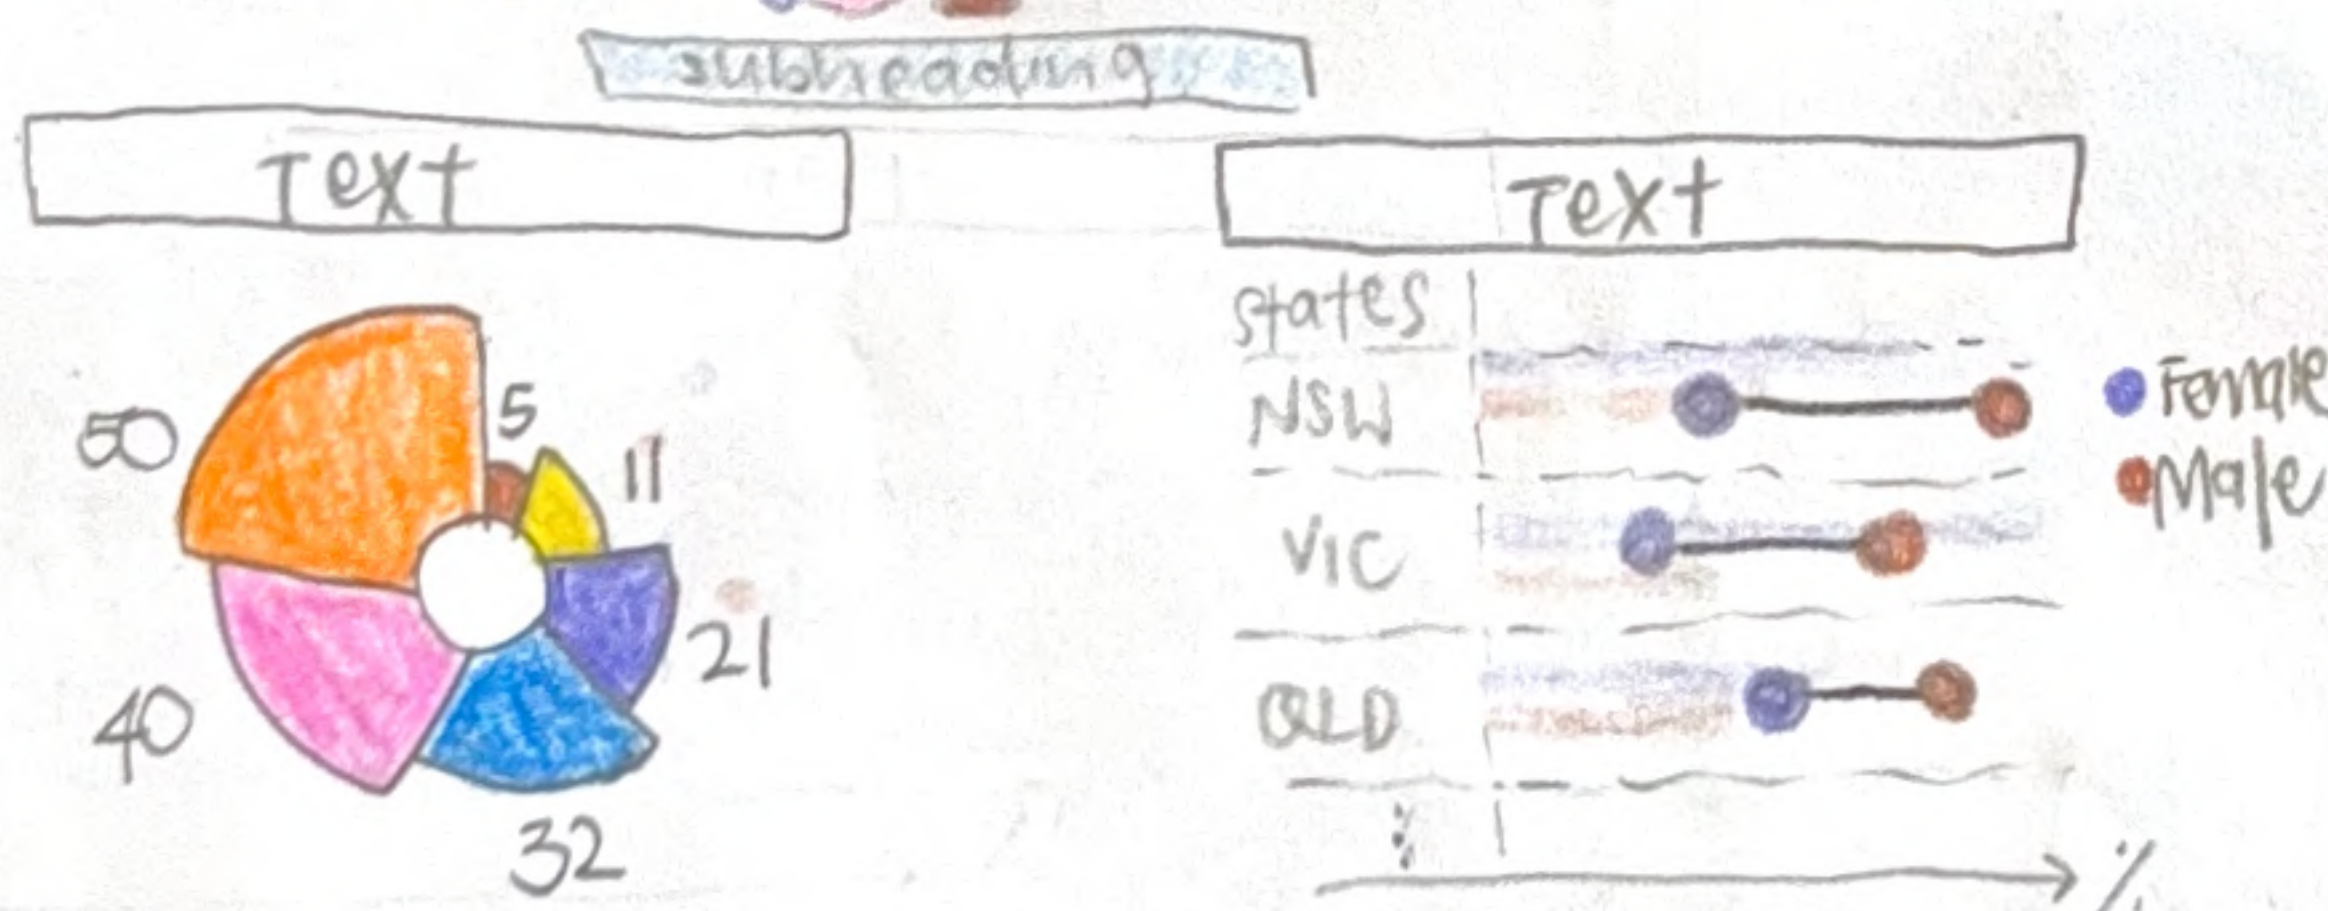 subheading
Text
Text
50
5
11
21
40
32
states
NSW
VIC
QLD
%
Female
Male